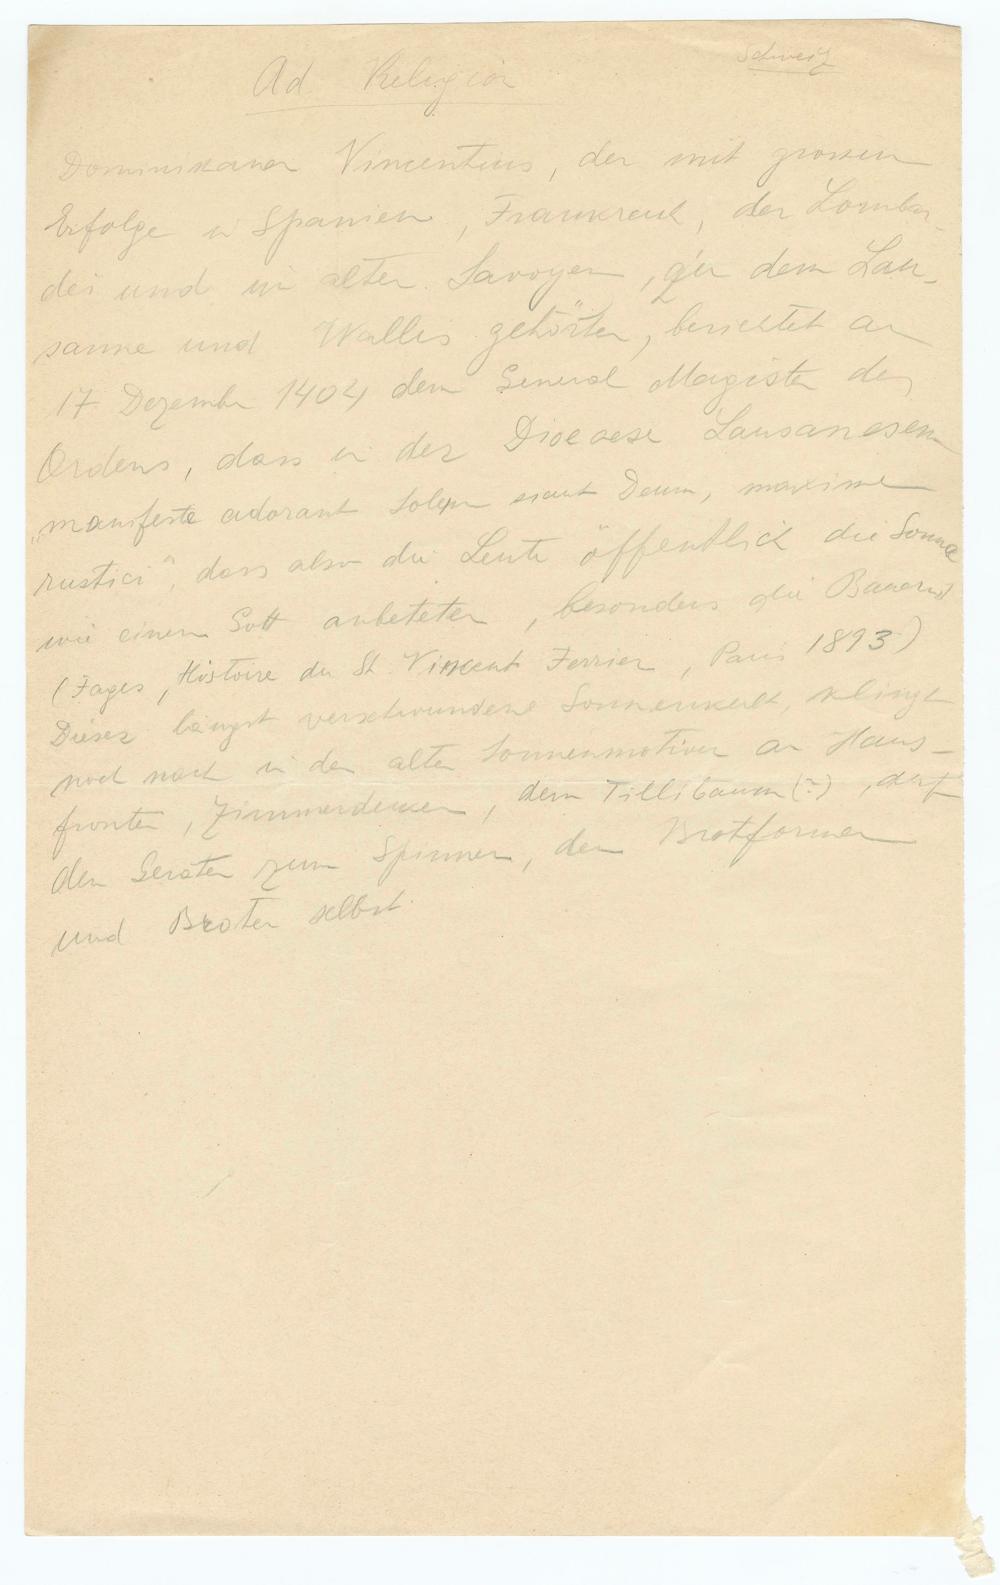 Schweiz
Ad Religion
Dominikaner Vincentius, der mit grossem
Erfolge in Spanien, Frankreich, der Lombar-
dei und in alten Savoyen, zu dem Lau-
sanne und Wallis gehörten, berichtet am
17 Dezember 1404 dem General Magister des
Ordens, dass in der Dioecese Lausanesem
„manifeste adorant Solem sicut Deum, maxime
rustici", dass also die Leute öffentlich die Sonne
wie einem Gott anbeteten, besonders die Bauern
(Fages, Histoire du St Vincent Ferrier, Paris 1893)
Dieser längst verschwundene Sonnenkult, klingt
noch nach in den alten Sonnenmotiven an Haus-
fronten, Zimmerdecken, dem Tillibaum (?), auf
den Geraten zum Spinnen, den Brotformen
und Broten selbst.